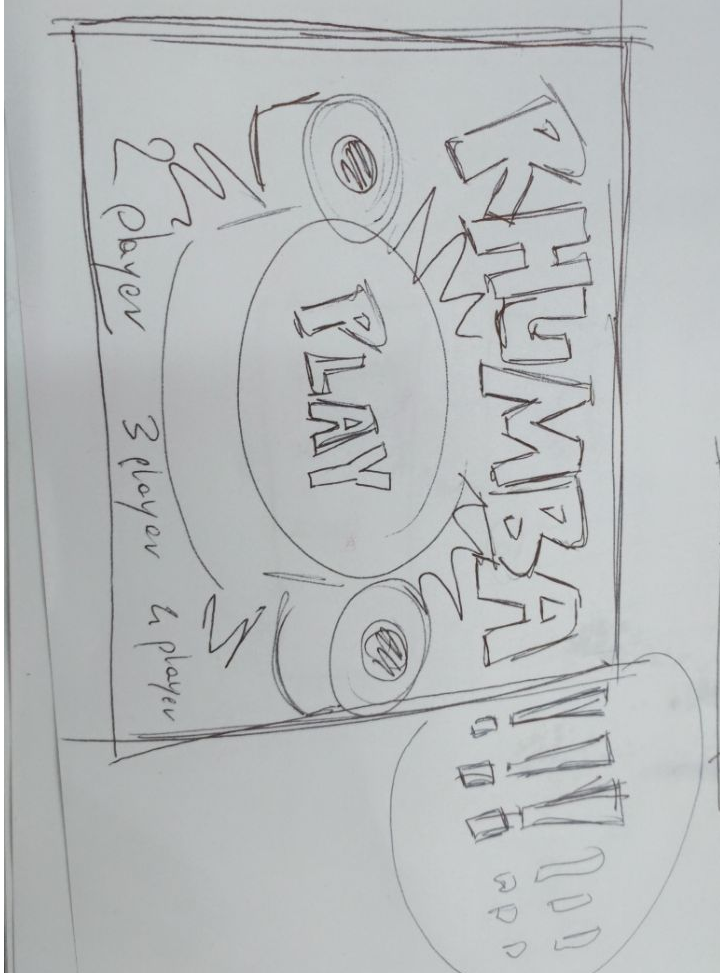 RHUMBA!!!!!!
PLAY
2 player 3 player 4 player